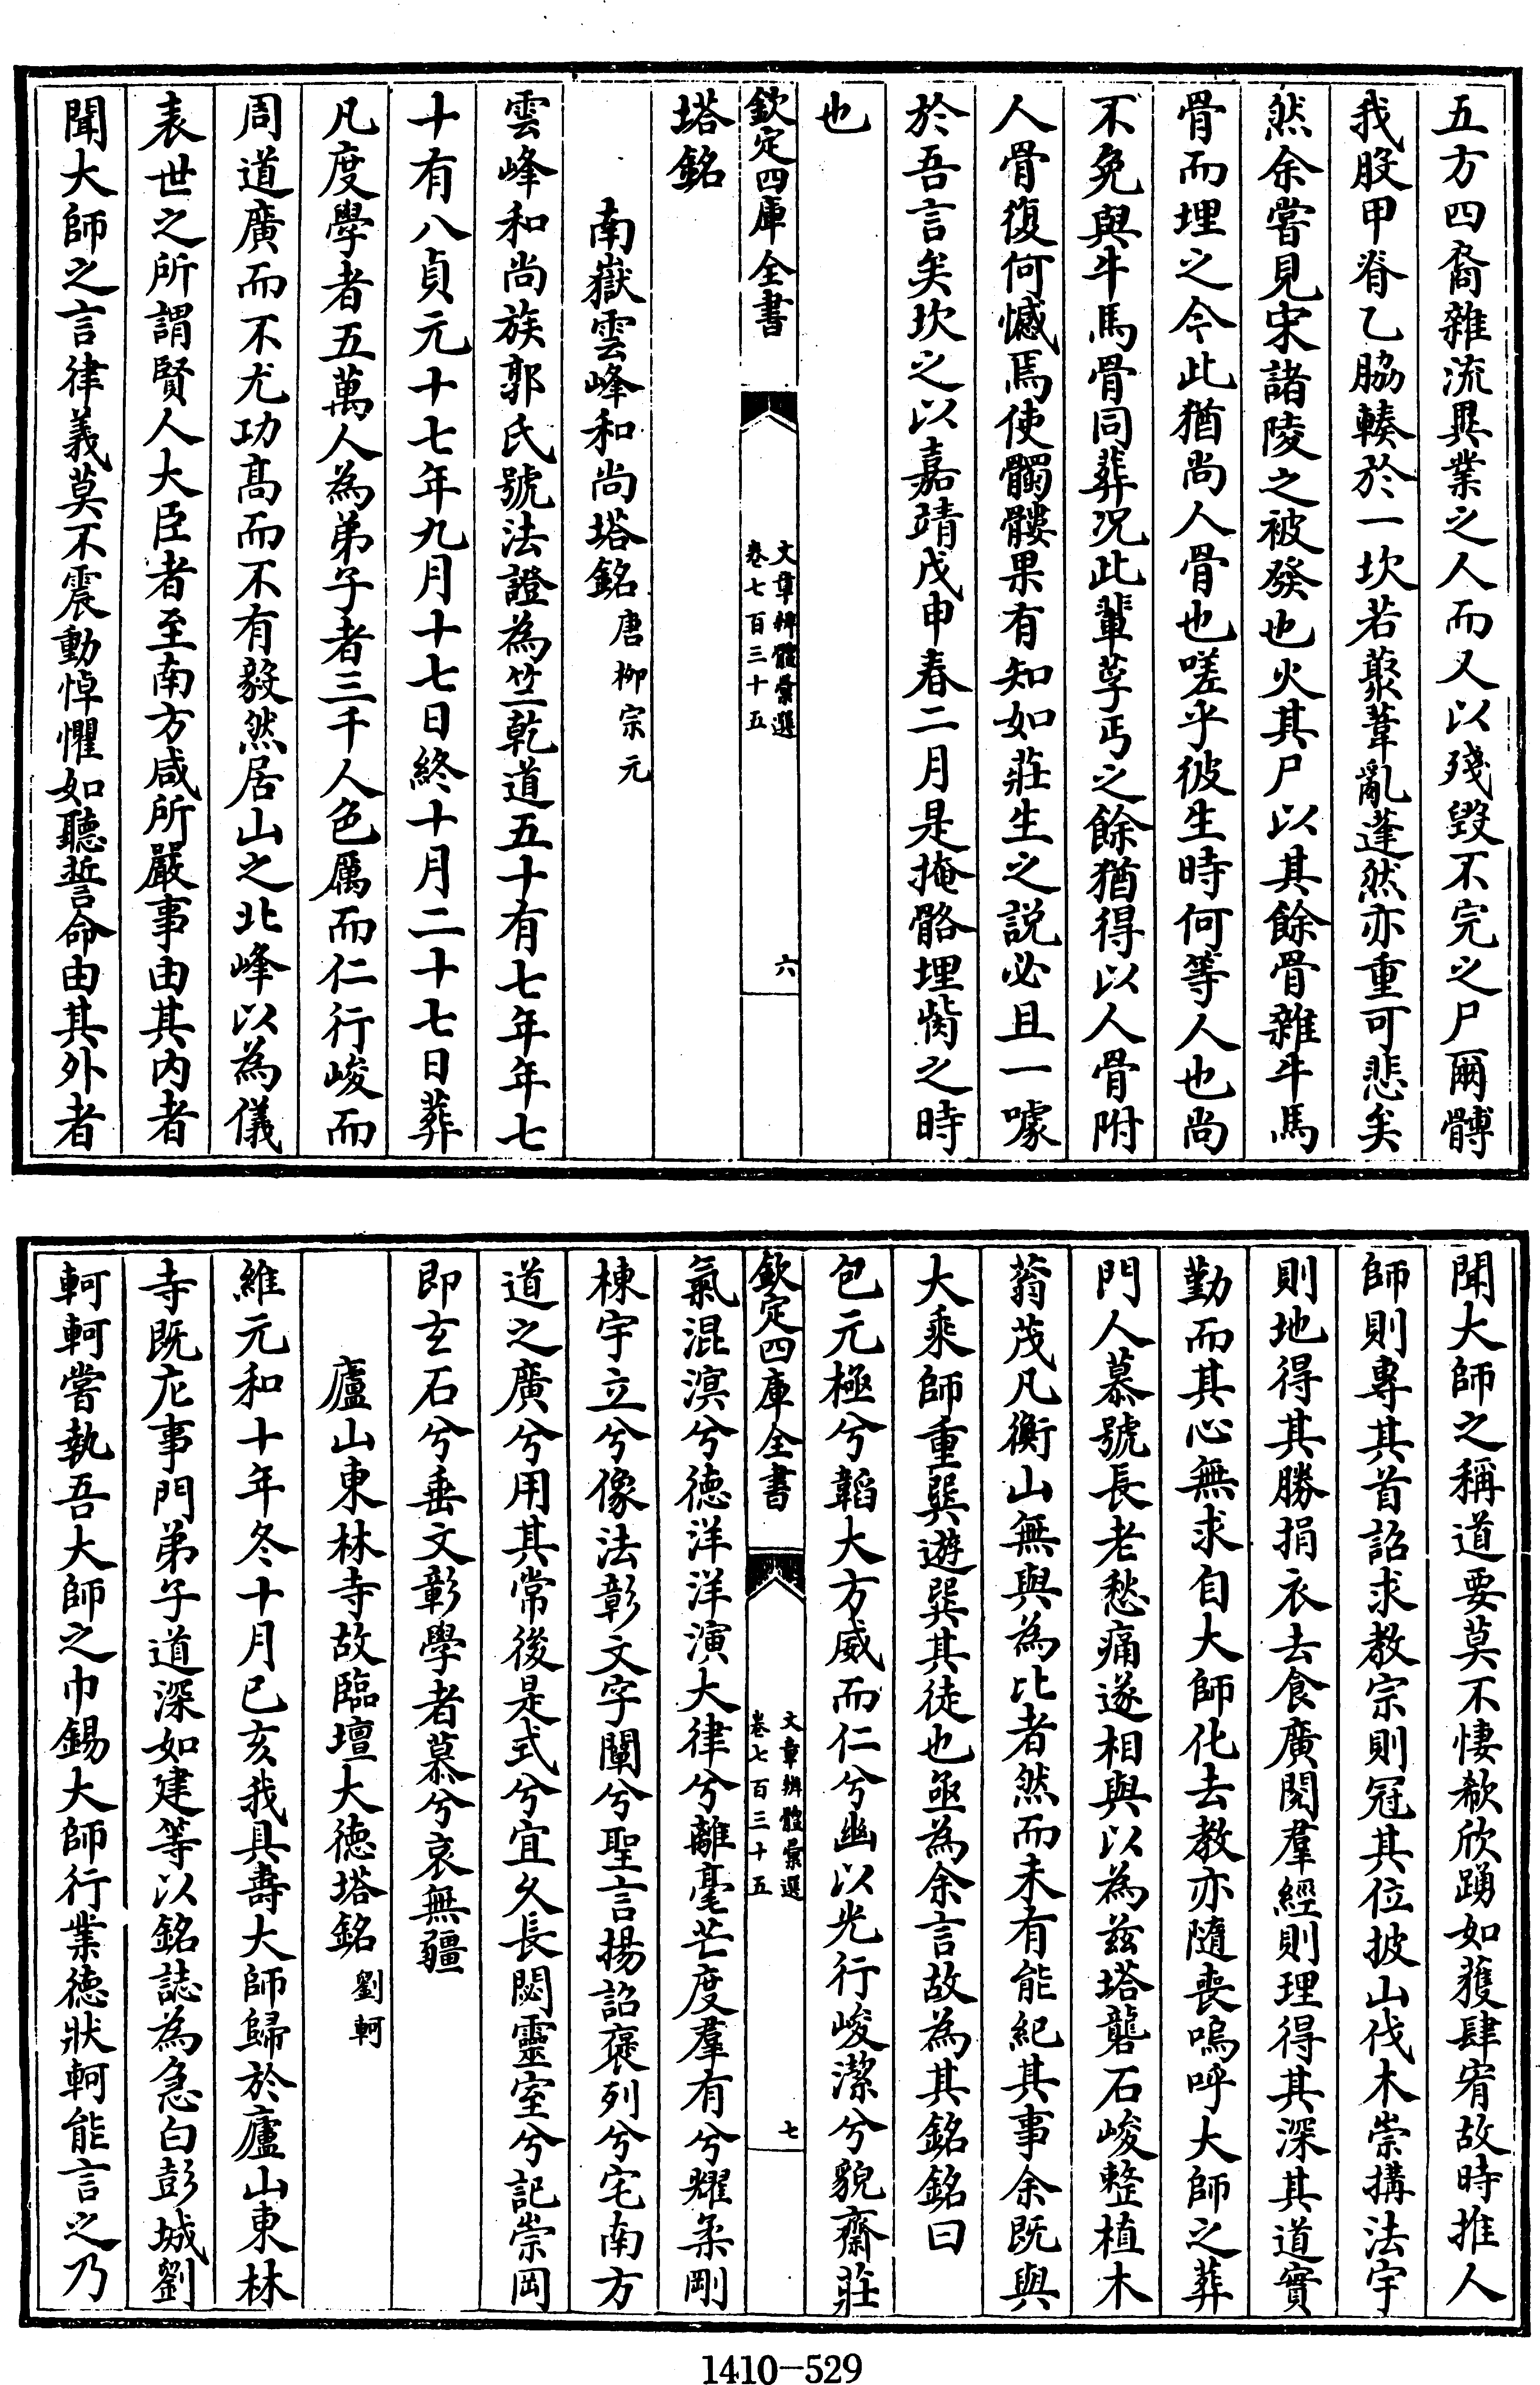 五方四裔雜流異業之人而又以殘毀不完之尸爾髆
我股甲脊乙脇輳於一坎若聚葦亂蓬然亦重可悲矣
然余嘗見宋諸陵之被發也火其尸以其餘骨雜牛馬
骨而埋之今此猶尚人骨也嗟乎彼生時何等人也尚
不免與牛馬骨同葬况此輩莩丐之餘猶得以人骨附
人骨復何憾焉使髑髏果有知如莊生之説必且一噱
於吾言矣坎之以嘉靖戊申春二月是掩骼埋胔之時
也
欽定四庫全書
文章辨體彙選
卷七百三十五
六
塔銘
南嶽雲峰和尚塔銘唐柳宗元
雲峰和尚族郭氏號法證為竺乾道五十有七年年七
十有八貞元十七年九月十七日終十月二十七日葬
凡度學者五萬人為弟子者三千人色厲而仁行峻而
周道廣而不尤功髙而不有毅然居山之北峰以為儀
表世之所謂賢人大臣者至南方咸所嚴事由其内者
聞大師之言律義莫不震動悼懼如聽誓命由其外者
聞大師之稱道要莫不悽欷欣踴如獲肆宥故時推人
師則專其首詔求教宗則冠其位披山伐木崇搆法宇
則地得其勝捐衣去食廣閱羣經則理得其深其道實
勤而其心無求自大師化去教亦隨喪嗚呼大師之葬
門人慕號長老愁痛遂相與以為兹塔礱石峻整植木
蓊茂凡衡山無與為比者然而未有能紀其事余既與
大乘師重巽遊巽其徒也亟為余言故為其銘銘曰
包元極兮韜大方威而仁兮幽以光行峻潔兮貌齋莊
欽定四庫全書
文章辨體彙選
卷七百三十五
七
氣混溟兮德洋洋演大律兮離毫芒度羣有兮耀柔剛
棟宇立兮像法彰文字闡兮聖言揚詔褒列兮宅南方
道之廣兮用其常後是式兮宜久長閟靈室兮記崇岡
即玄石兮垂文彰學者慕兮哀無疆
廬山東林寺故臨壇大德塔銘劉軻
維元和十年冬十月己亥我具壽大師歸於廬山東林
寺既庀事門弟子道深如建等以銘誌為急白彭城劉
軻軻嘗執吾大師之巾錫大師行業德狀軻能言之乃
1410-529